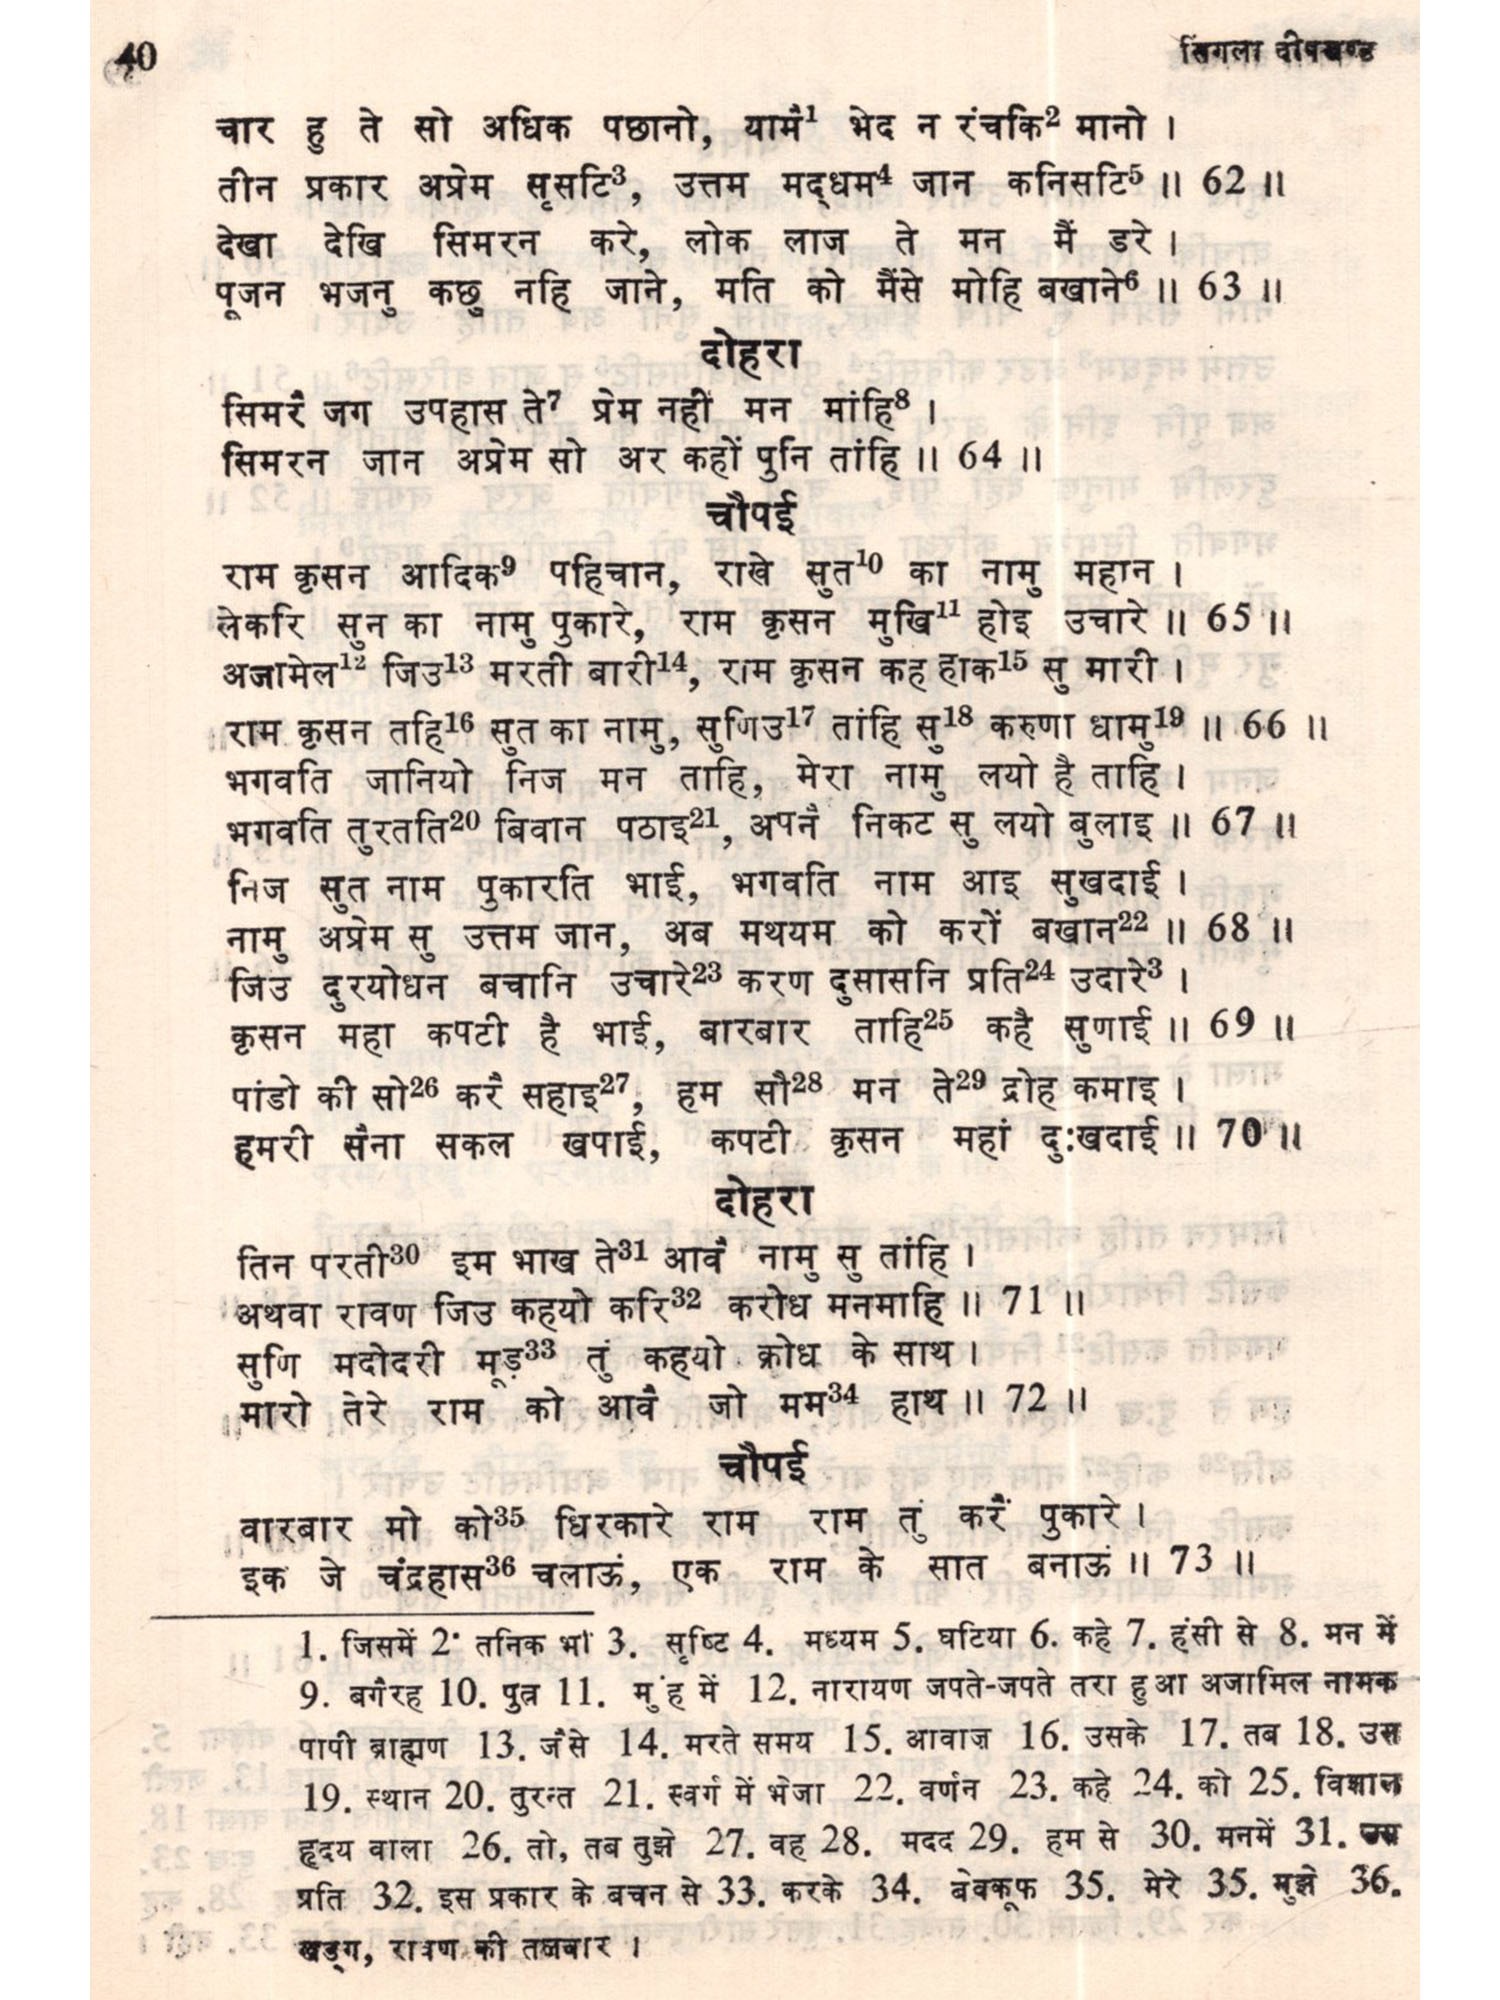 40
सिंगला दीपखण्ड
चार हु ते सो अधिक पछानो, यामैं1 भेद न रंचकि2 मानो ।
तीन प्रकार अप्रेम सृसटि3, उत्तम मद्धम4 जान कनिसटि5 ॥ 62 ॥
देखा देखि सिमरन करे, लोक लाज ते मन मैं डरे ।
पूजन भजनु कछु नहि जाने, मति को मैंसे मोहि बखाने6 ॥ 63 ॥
दोहरा
सिमरैं जग उपहास ते7 प्रेम नहीं मन मांहि8 ।
सिमरन जान अप्रेम सो अर कहों पुनि तांहि ॥ 64 ॥
चौपई
राम कृसन आदिक9 पहिचान, राखे सुत10 का नामु महान ।
लेकरि सुन का नामु पुकारे, राम कृसन मुखि11 होइ उचारे ॥ 65 ॥
अजामेल12 जिउ13 मरती बारी14, राम कृसन कह हाक15 सु मारी ।
राम कृसन तहि16 सुत का नामु, सुणिउ17 तांहि सु18 करुणा धामु19 ॥ 66 ॥
भगवति जानियो निज मन ताहि, मेरा नामु लयो है ताहि ।
भगवति तुरतति20 बिवान पठाइ21, अपनैं निकट सु लयो बुलाइ ॥ 67 ॥
निज सुत नाम पुकारति भाई, भगवति नाम आइ सुखदाई ।
नामु अप्रेम सु उत्तम जान, अब मथयम को करों बखान22 ॥ 68 ॥
जिउ दुरयोधन बचानि उचारे23 करण दुसासनि प्रति24 उदारे3 ।
कृसन महा कपटी है भाई, बारबार ताहि25 कहै सुणाई ॥ 69 ॥
पांडो की सो26 करैं सहाइ27, हम सौ28 मन ते29 द्रोह कमाइ ।
हमरी सैना सकल खपाई, कपटी कृसन महां दुःखदाई ॥ 70 ॥
दोहरा
तिन परती30 इम भाख ते31 आवैं नामु सु तांहि ।
अथवा रावण जिउ कहयो करि32 करोध मनमाहि ॥ 71 ॥
सुणि मदोदरी मूड़33 तुं कहयो क्रोध के साथ ।
मारो तेरे राम को आवैं जो मम34 हाथ ॥ 72 ॥
चौपई
वारबार मो को35 धिरकारे राम राम तुं करैं पुकारे ।
इक जे चंद्रहास36 चलाऊं, एक राम के सात बनाऊं ॥ 73 ॥
1. जिसमें 2· तनिक भी 3. सृष्टि 4. मध्यम 5. घटिया 6. कहे 7. हंसी से 8. मन में
9. बगैरह 10. पुत्र 11. मुंह में 12. नारायण जपते-जपते तरा हुआ अजामिल नामक
पापी ब्राह्मण 13. जैसे 14. मरते समय 15. आवाज़ 16. उसके 17. तब 18. उस
19. स्थान 20. तुरन्त 21. स्वर्ग में भेजा 22. वर्णन 23. कहे 24. को 25. विशाल
हृदय वाला 26. तो, तब तुझे 27. वह 28. मदद 29. हम से 30. मनमें 31. उस
प्रति 32. इस प्रकार के बचन से 33. करके 34. बेवकूफ 35. मेरे 35. मुझे 36.
खड्ग, रावण की तलवार ।